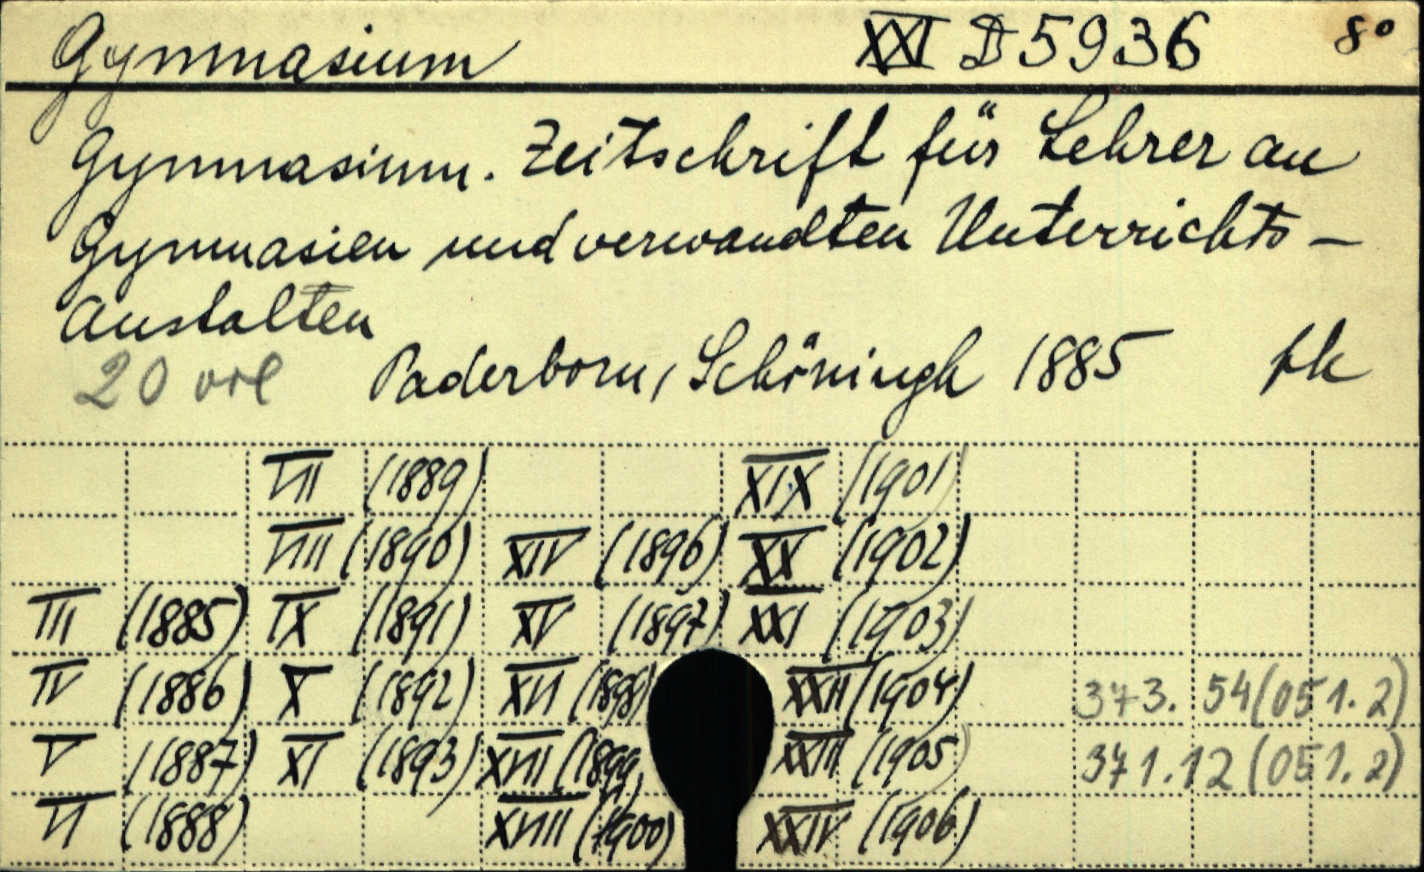 Gymnasium XXI D 5936 8°
Gymnasium. Zeitschrift für Lehrer an
Gymnasien und verwandten Unterrichts-
Anstalten
20 vol Paderborn, Schöningh 1885 fk
VII (1889) XIX (1901)
VIII (1890) XIV (1896) XX (1902)
III (1885) IX (1891) XV (1897) XXI (1903)
IV (1886) X (1892) XVI (1898) XXII (1904) 373.54(051.2)
V (1887) XI (1893) XVII (1899) XXIII (1905) 371.12(051.2)
VI (1888) XVIII (1900) XXIV (1906)